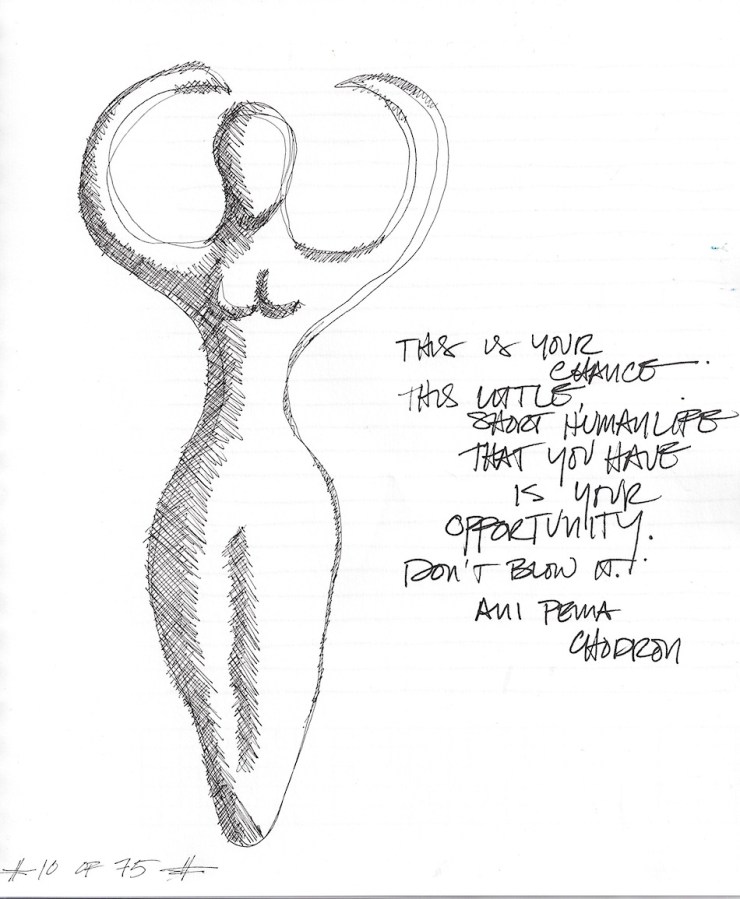 THIS IS YOUR
CHANCE.
THIS LITTLE,
SHORT HUMAN LIFE
THAT YOU HAVE
IS YOUR
OPPORTUNITY.
DON'T BLOW IT.
ANI PEMA
CHODRON
#10 OF 75 #